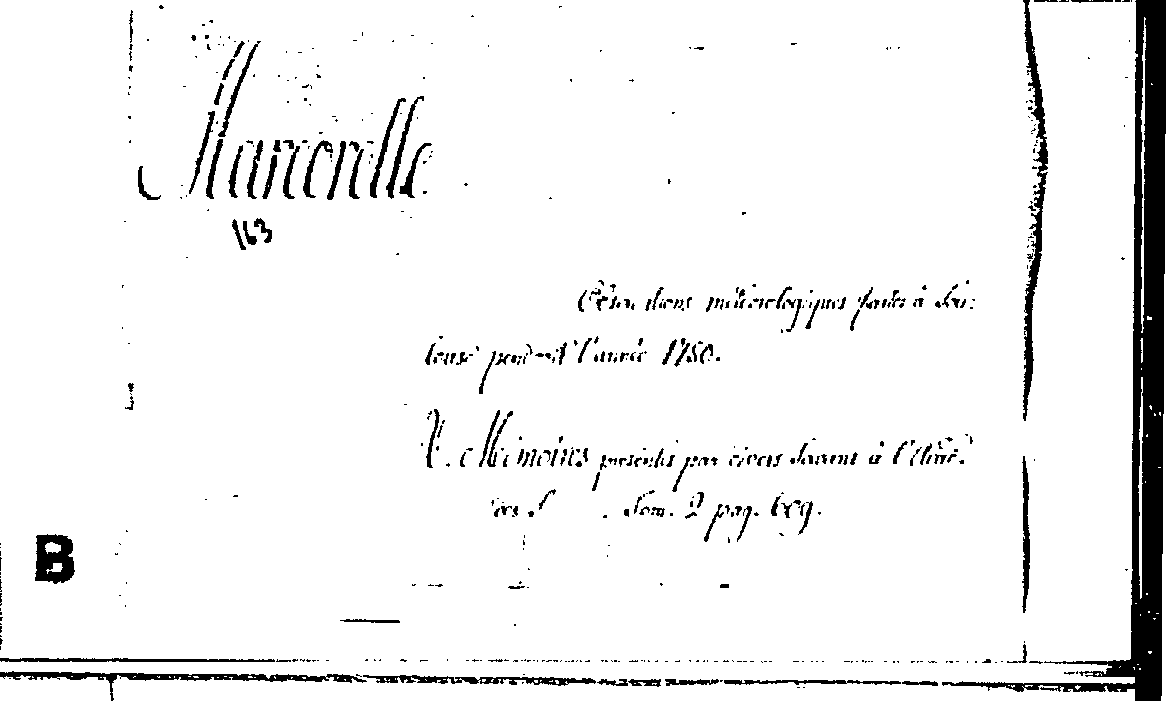 Marcorelle
163
Observations météorologiques faites à Tou:
louse pendant l'année 1750.
V. Mémoires présentés par divers Savans à l'Acad.
des S . Tom. 2 pag. 609.
B